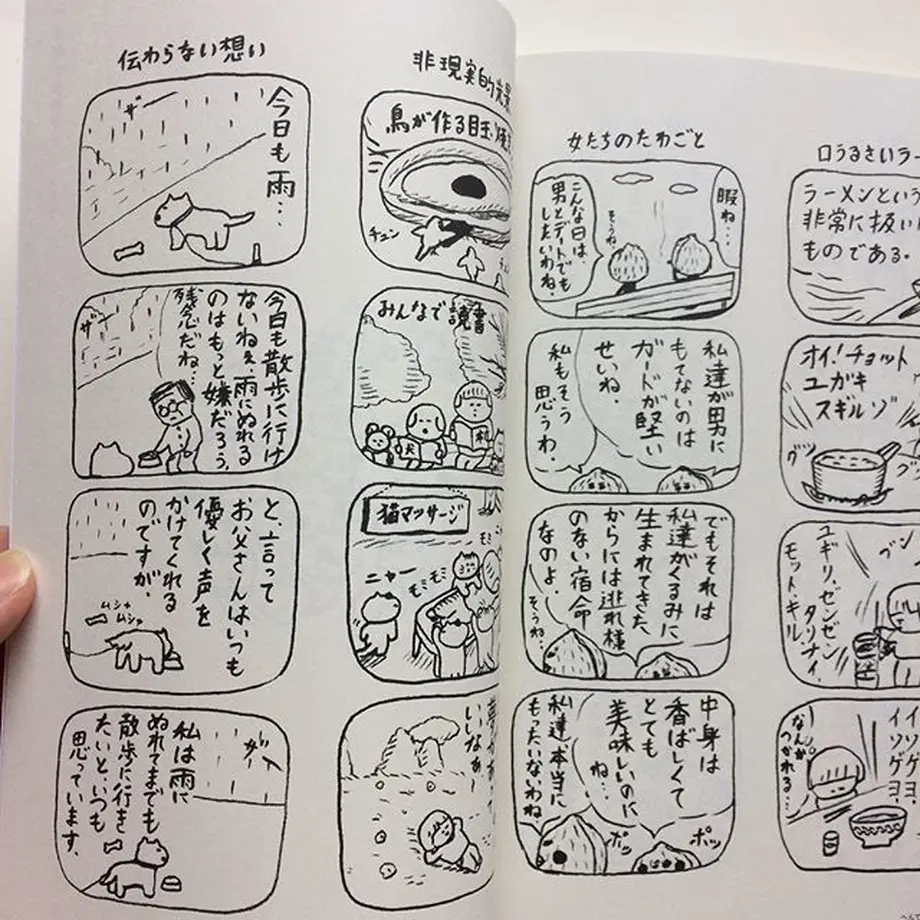 伝わらない想い
ザー
今日も雨…
今日も散歩に行け
ないねぇ、雨にぬれる
のはもっと嫌だろう。
残念だね…
ザー
と、言って
お父さんはいつも
優しく声を
かけてくれる
のですが、
ムシャ
ムシャ
ザー
私は雨に
ぬれてまでも
散歩に行き
たいと、いつも
思っています。
非現実的光景
鳥が作る目玉焼
チュン
みんなで読書
猫マッサージ
ニャー
モミモミ
モミモミ
いいなぁ
女たちのたわごと
暇ね…
そうね
こんな日は、
男とデートでも
したいわね。
私達が男に
もてないのは
ガードが堅い
せいね。
私もそう
思うわ。
でもそれは
私達がくるみに
生まれてきた
からには逃れ様
のない宿命
なのよ。
そうね…
中身は
香ばしくて
とても
美味しいのに
ね…
私達、本当に
もったいないわね
ポッ
ポッ
口うるさいラー
ラーメンという
非常に扱い
ものである。
オイ!チョット
ユガキ
スギルゾ
グツ
ブン
ユギリ、ゼンゼン
タリナイ
モット、キル
イソゲヨ
イソゲヨ
なんか
つかれる…